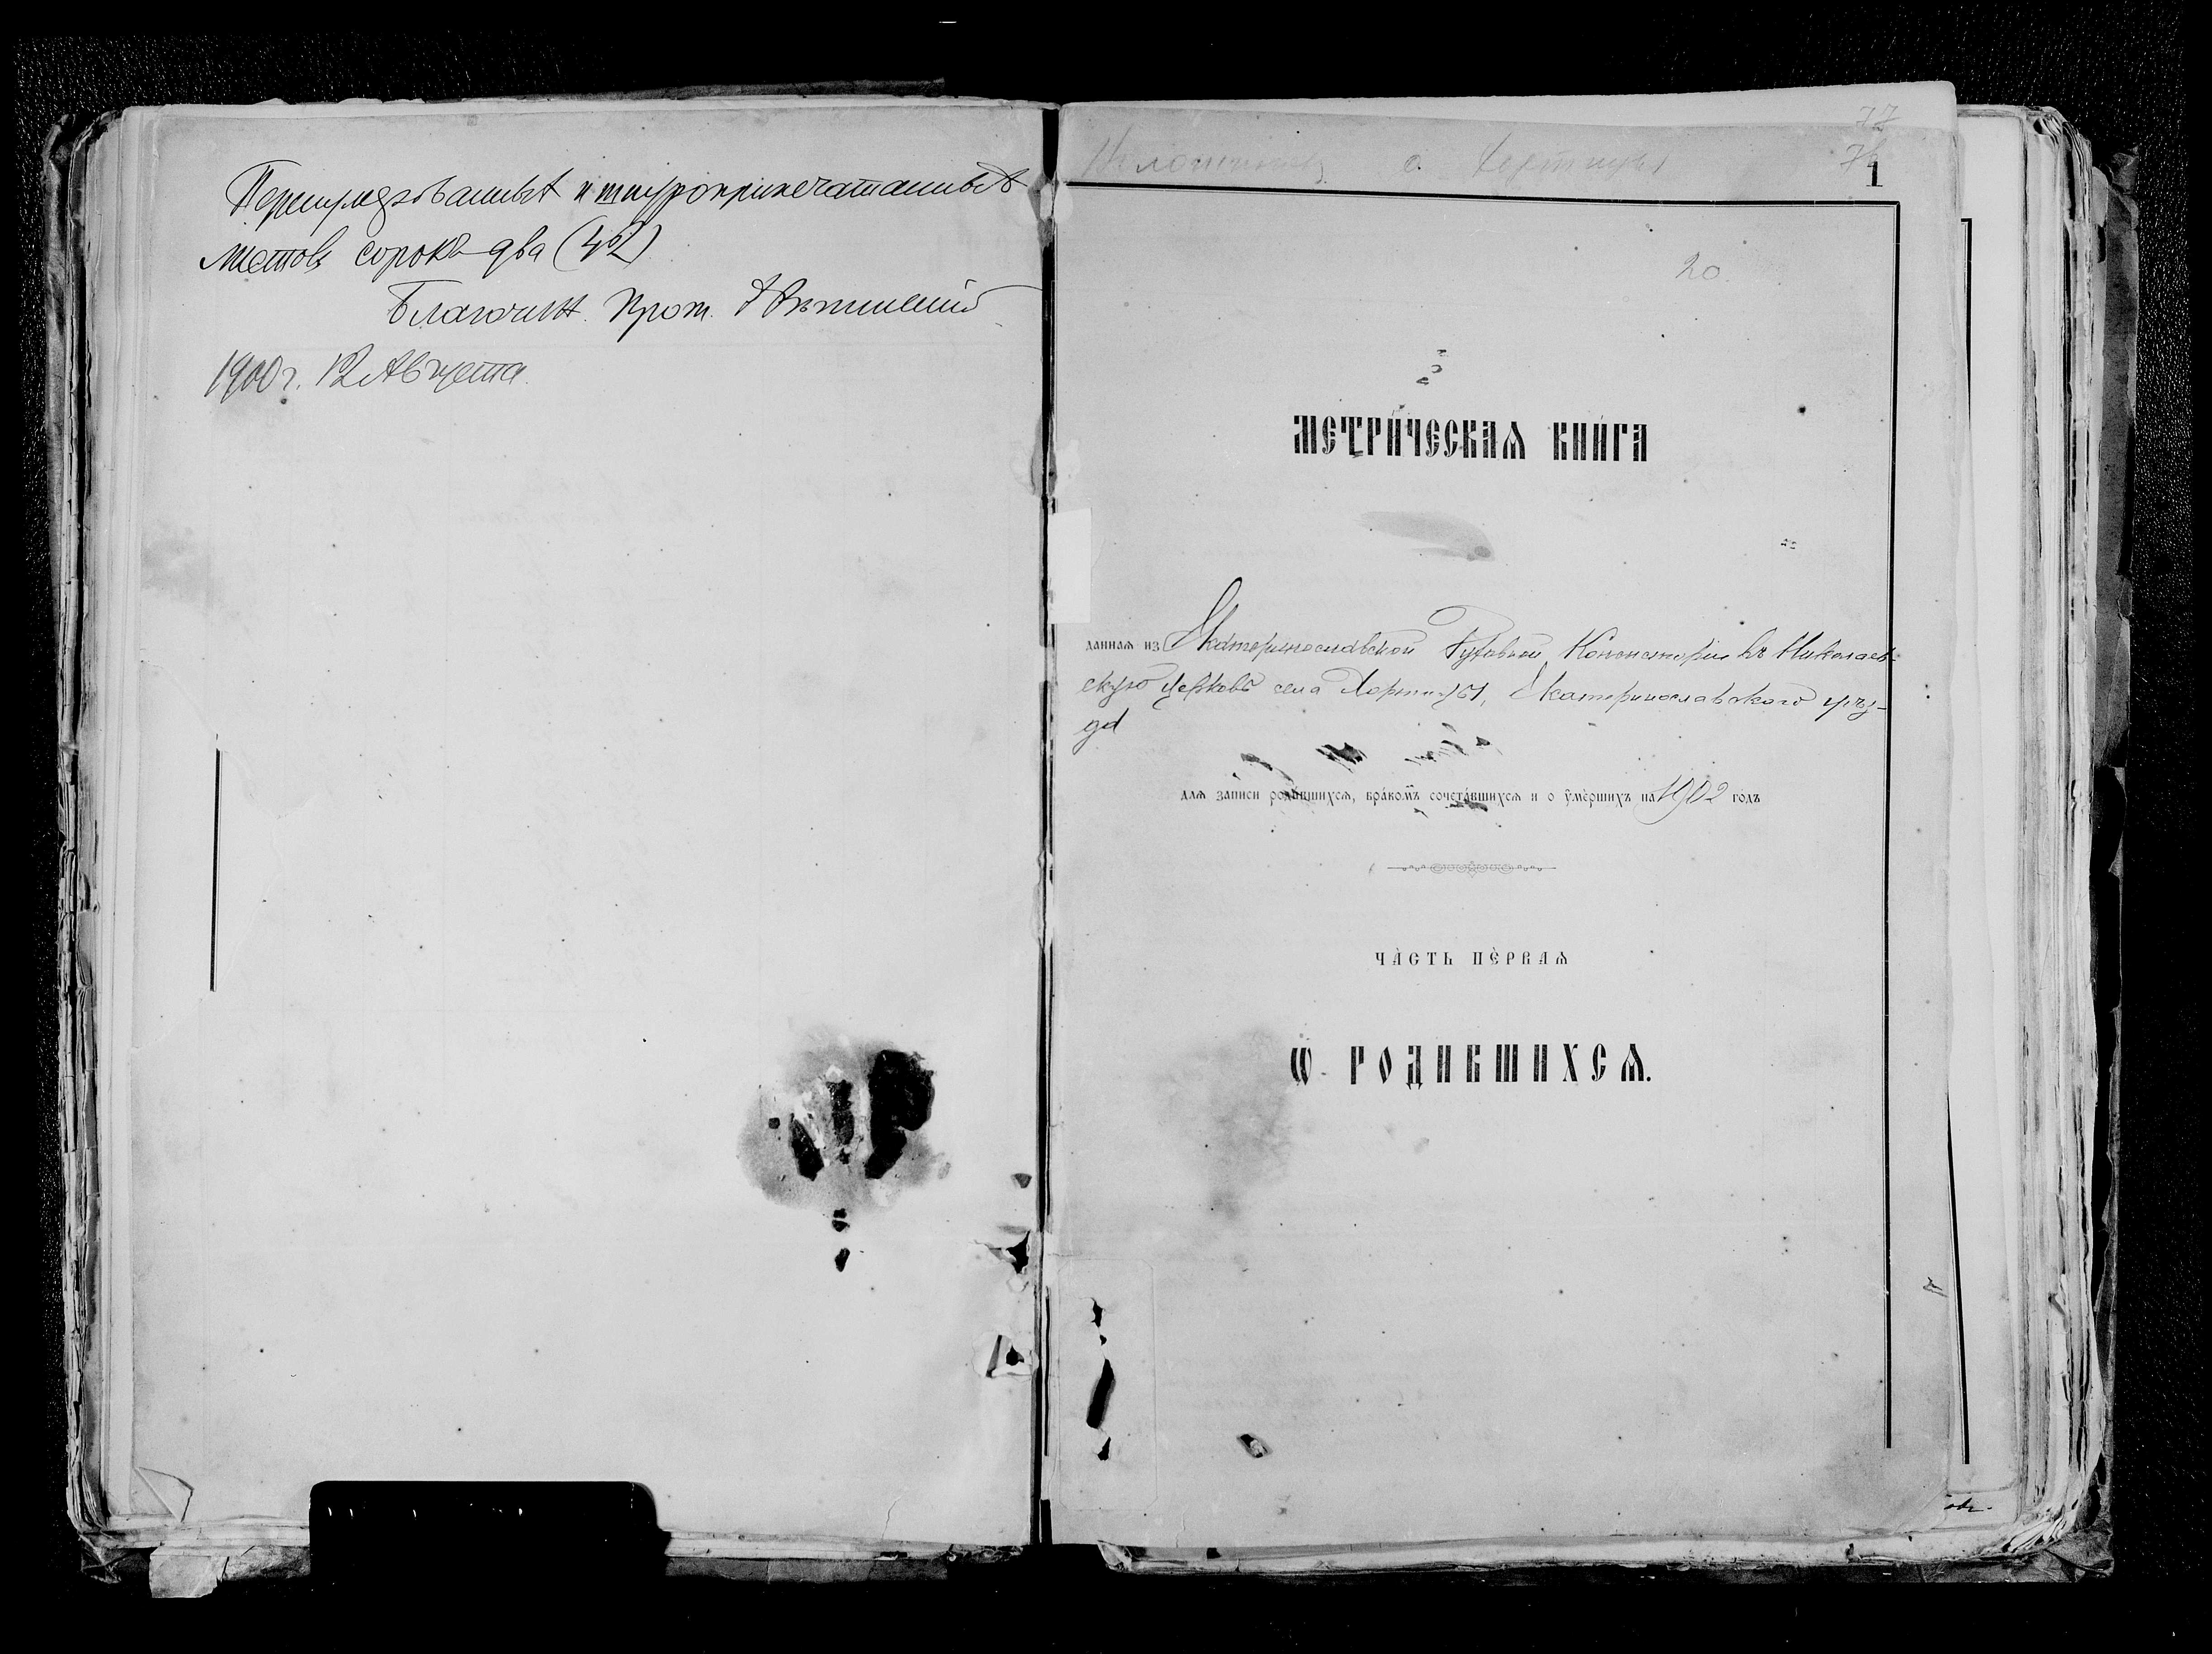 Перенумерованныхъ и шнуроприпечатанныхъ
листовъ сорокъ два (42)
Благочин. Прот.
1900 г. 12 Августа.
77
с. Хортицы
1
20
МЕТРИ́ЧЕСКАѦ КНИ́ГА
даннаѧ из Екатеринославской Духовной Консисторіи въ Николаев-
скую церковь села Хортицы, Екатеринославского уѣз-
да
длѧ за́писи роди́вшихсѧ, бра́комъ сочета́вшихсѧ и о ᲂуме́ршихъ на 1902 го́дъ
ЧА́СТЬ ПЕ́РВАѦ
Ѡ РОДИВШИХСѦ.